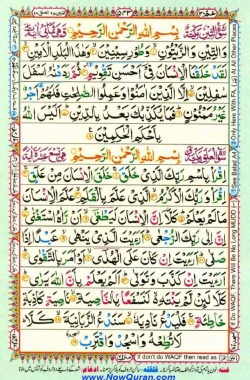 بِسْمِ اللّٰهِ الرَّحْمٰنِ الرَّحِيْمِ
وَالتِّيْنِ وَالزَّيْتُوْنِ ۙ وَطُوْرِ سِيْنِيْنَ ۙ وَهٰذَا الْبَلَدِ الْاَمِيْنِ ۙ
لَقَدْ خَلَقْنَا الْاِنْسَانَ فِيْۤ اَحْسَنِ تَقْوِيْمٍ ۫ ثُمَّ رَدَدْنٰهُ اَسْفَلَ
سٰفِلِيْنَ ۙ اِلَّا الَّذِيْنَ اٰمَنُوْا وَعَمِلُوا الصّٰلِحٰتِ فَلَهُمْ اَجْرٌ
غَيْرُ مَمْنُوْنٍ ؕ فَمَا يُكَذِّبُكَ بَعْدُ بِالدِّيْنِ ؕ اَلَيْسَ اللّٰهُ
بِاَحْكَمِ الْحٰكِمِيْنَ
بِسْمِ اللّٰهِ الرَّحْمٰنِ الرَّحِيْمِ
اِقْرَاْ بِاسْمِ رَبِّكَ الَّذِيْ خَلَقَ ۚ خَلَقَ الْاِنْسَانَ مِنْ عَلَقٍ ۚ
اِقْرَاْ وَرَبُّكَ الْاَكْرَمُ ۙ الَّذِيْ عَلَّمَ بِالْقَلَمِ ۙ عَلَّمَ الْاِنْسَانَ
مَا لَمْ يَعْلَمْ ؕ كَلَّاۤ اِنَّ الْاِنْسَانَ لَيَطْغٰۤى ۙ اَنْ رَّاٰهُ اسْتَغْنٰى ؕ
اِنَّ اِلٰى رَبِّكَ الرُّجْعٰى ؕ اَرَءَيْتَ الَّذِيْ يَنْهٰى ۙ عَبْدًا اِذَا
صَلّٰى ؕ اَرَءَيْتَ اِنْ كَانَ عَلَى الْهُدٰۤى ۙ اَوْ اَمَرَ بِالتَّقْوٰى ؕ
اَرَءَيْتَ اِنْ كَذَّبَ وَتَوَلّٰى ؕ اَلَمْ يَعْلَمْ بِاَنَّ اللّٰهَ يَرٰى ؕ
كَلَّا لَئِنْ لَّمْ يَنْتَهِ ۙ لَنَسْفَعًۢا بِالنَّاصِيَةِ ۙ نَاصِيَةٍ كَاذِبَةٍ
خَاطِئَةٍ ۚ فَلْيَدْعُ نَادِيَهٗ ۙ سَنَدْعُ الزَّبَانِيَةَ ۙ كَلَّا ؕ
لَا تُطِعْهُ وَاسْجُدْ وَاقْتَرِبْ
If don't do WAQF then read as
www.NowQuran.com